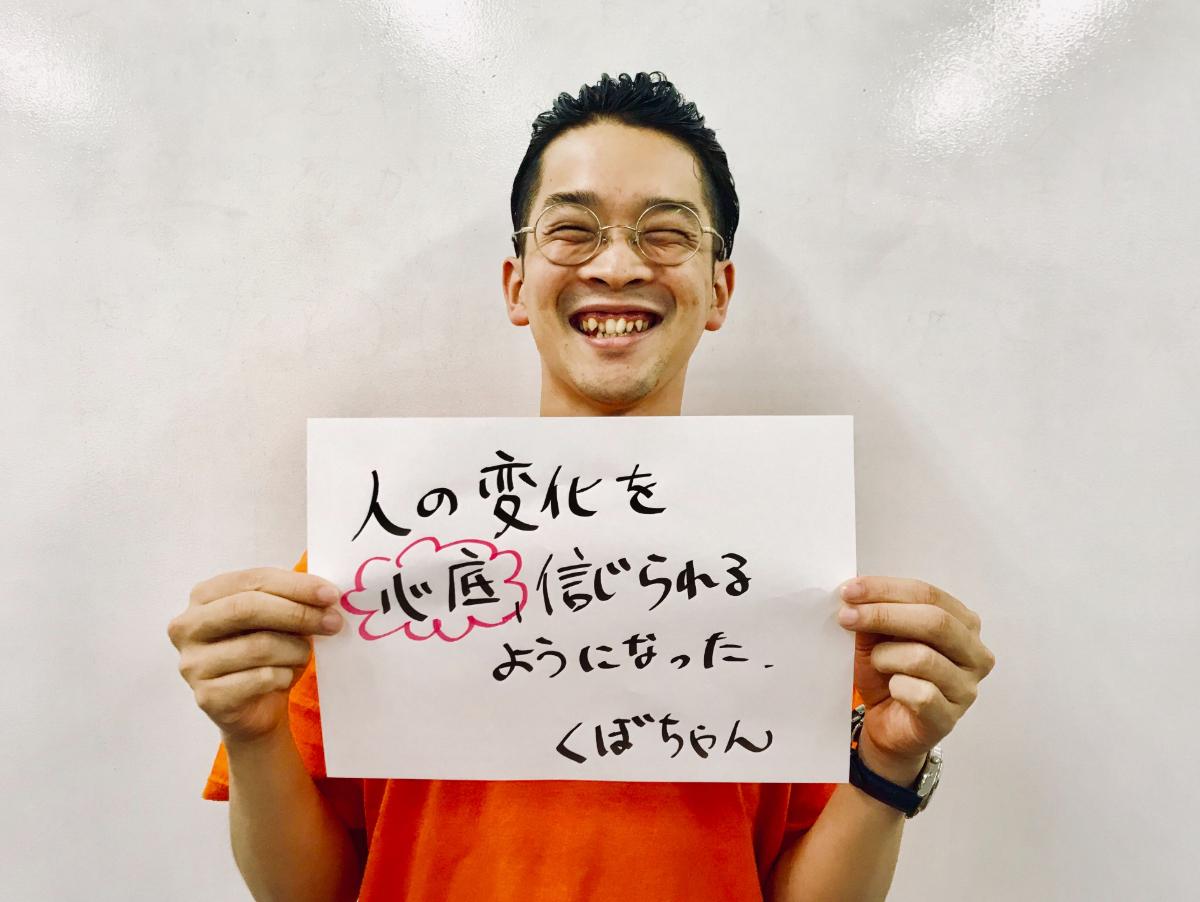 人の変化を
心底、信じられる
ようになった.
くぼちゃん